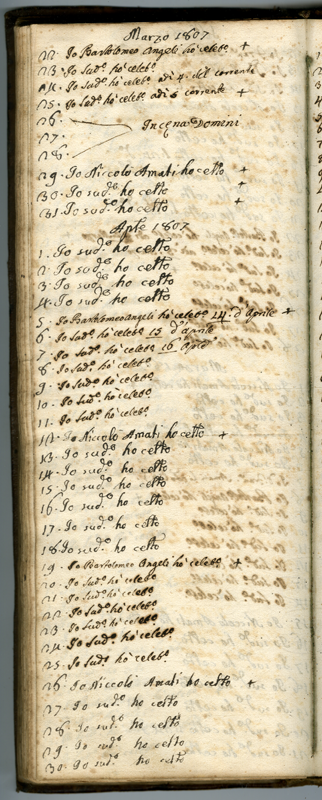 Marzo 1807
22. Io Bartolomeo Angeli hò celebº +
23. Io Sudº hò celebº
24. Io Sudº hò celebº adi 4 del corrente
25. Io Sudº hò celebº adi 6 corrente +
26.
27. In Cena Domini
28.
29. Io Niccolo Amati ho celto +
30. Io sudº ho celto +
31. Io sudº ho celto +
Aple 1807
1. Io sudº ho celto
2. Io sudº ho celto
3. Io sudº ho celto
4. Io sudº ho celto
5. Io Bartolomeo Angeli hò celebº 14. d'Aprile +
6. Io Sudº hò celebº 15 d'Aprile
7. Io Sudº hò celebº 16 Aple
8. Io Sudº hò celebº
9. Io Sudº hò celebº
10. Io Sudº hò celebº
11. Io Sudº hò celebº
12. Io Niccolò Amati ho celto +
13. Io sudº ho celto
14. Io sudº ho celto
15. Io sudº ho celto
16. Io sudº ho celto
17. Io sudº ho celto
18. Io sudº ho celto
19. Io Bartolomeo Angeli hò celebº +
20. Io Sudº hò celebº
21. Io Sudº hò celebº
22. Io Sudº hò celebº
23. Io Sudº hò celebº
24. Io Sudº hò celebº
25. Io Sudº hò celebº
26. Io Niccolò Amati ho celto +
27. Io sudº ho celto
28. Io sudº ho celto
29. Io sudº ho celto
30. Io sudº ho celto